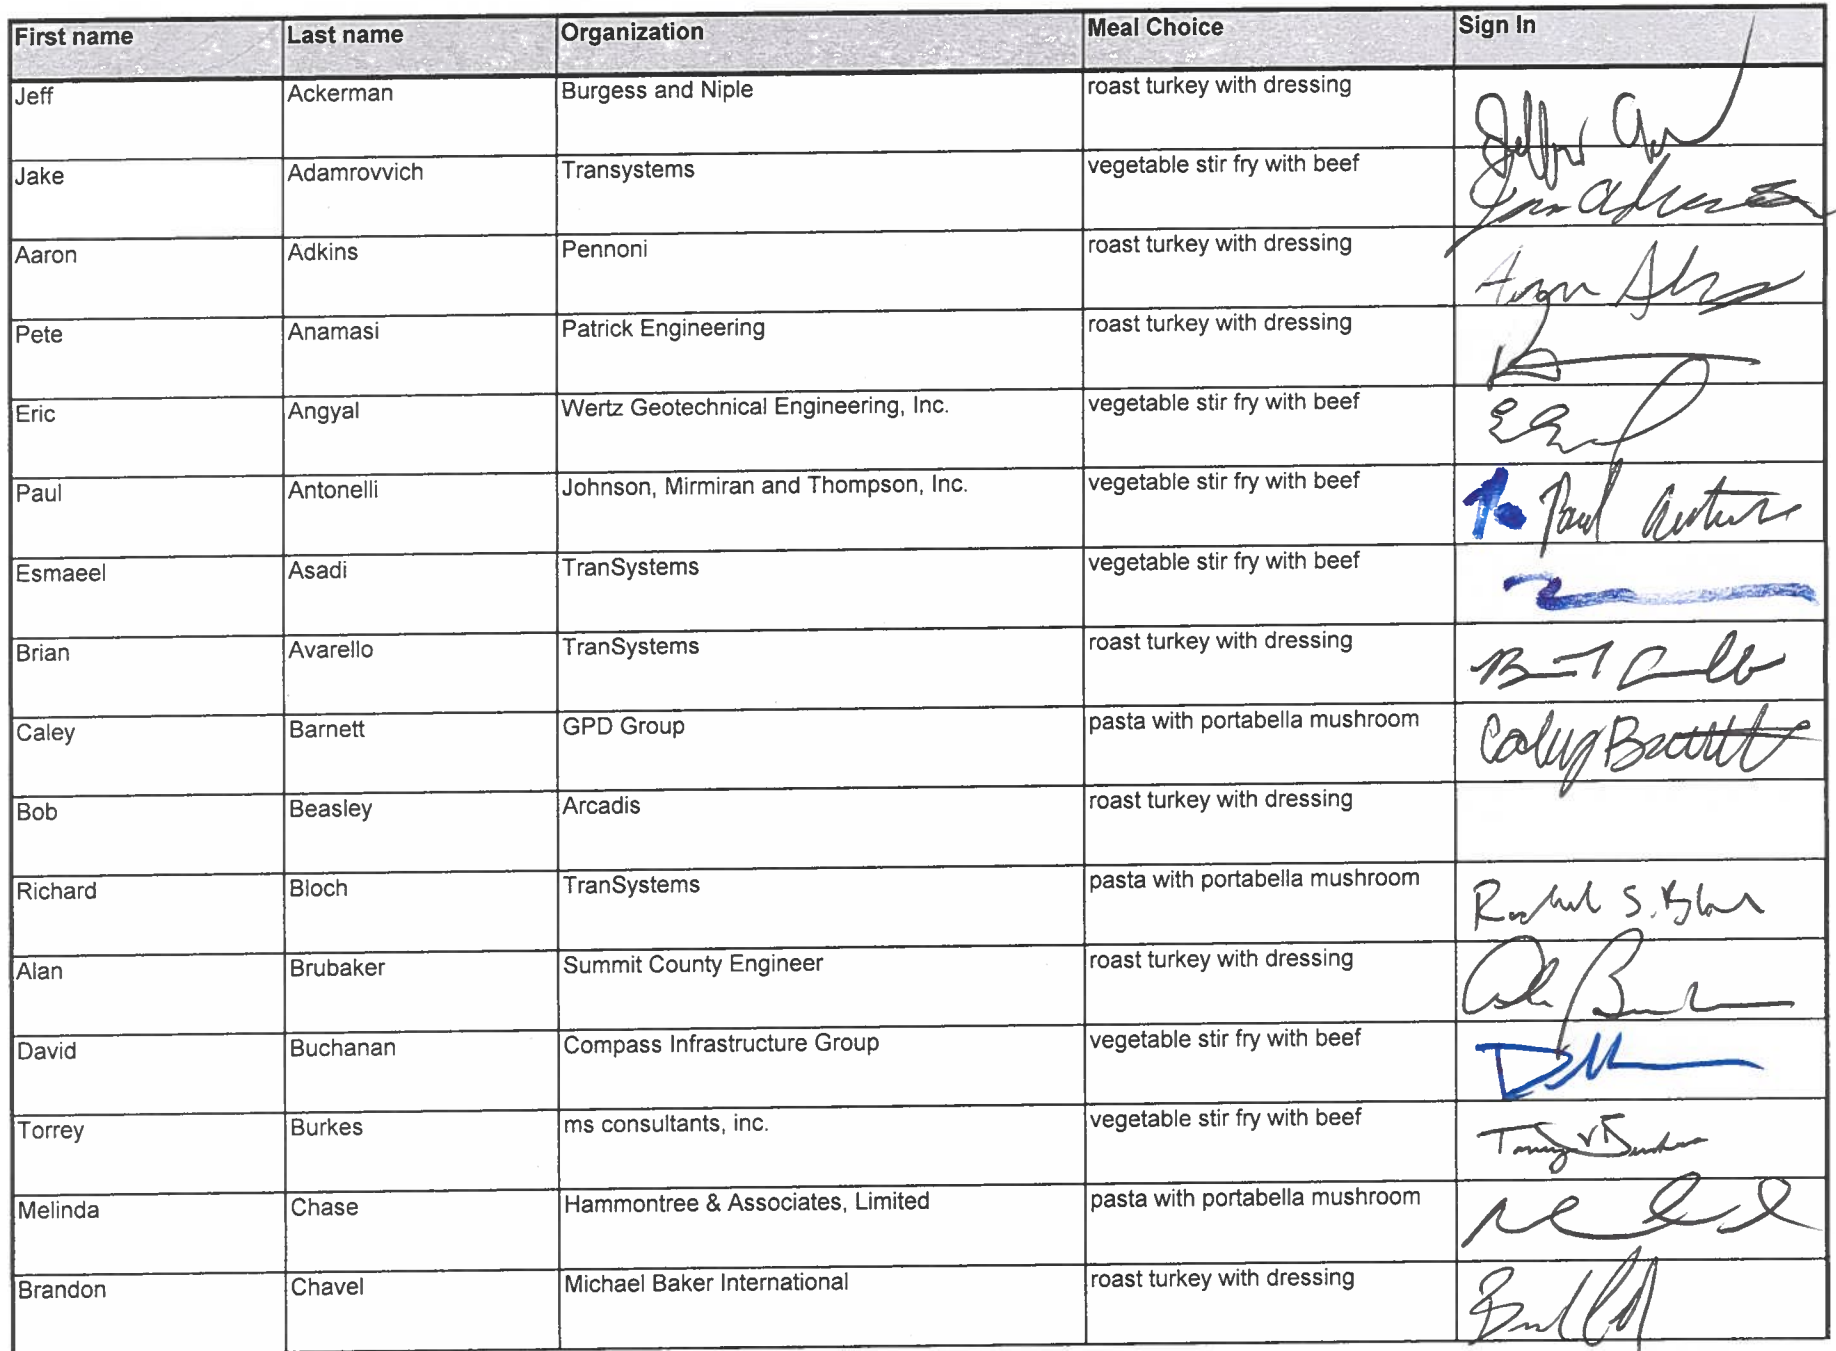 First name Last name Organization Meal Choice Sign In
Jeff Ackerman Burgess and Niple roast turkey with dressing
Jake Adamrovvich Transystems vegetable stir fry with beef
Aaron Adkins Pennoni roast turkey with dressing
Pete Anamasi Patrick Engineering roast turkey with dressing
Eric Angyal Wertz Geotechnical Engineering, Inc. vegetable stir fry with beef
Paul Antonelli Johnson, Mirmiran and Thompson, Inc. vegetable stir fry with beef Paul
Esmaeel Asadi TranSystems vegetable stir fry with beef
Brian Avarello TranSystems roast turkey with dressing
Caley Barnett GPD Group pasta with portabella mushroom Caley Barnett
Bob Beasley Arcadis roast turkey with dressing
Richard Bloch TranSystems pasta with portabella mushroom Richard S. Bloch
Alan Brubaker Summit County Engineer roast turkey with dressing
David Buchanan Compass Infrastructure Group vegetable stir fry with beef
Torrey Burkes ms consultants, inc. vegetable stir fry with beef
Melinda Chase Hammontree & Associates, Limited pasta with portabella mushroom
Brandon Chavel Michael Baker International roast turkey with dressing